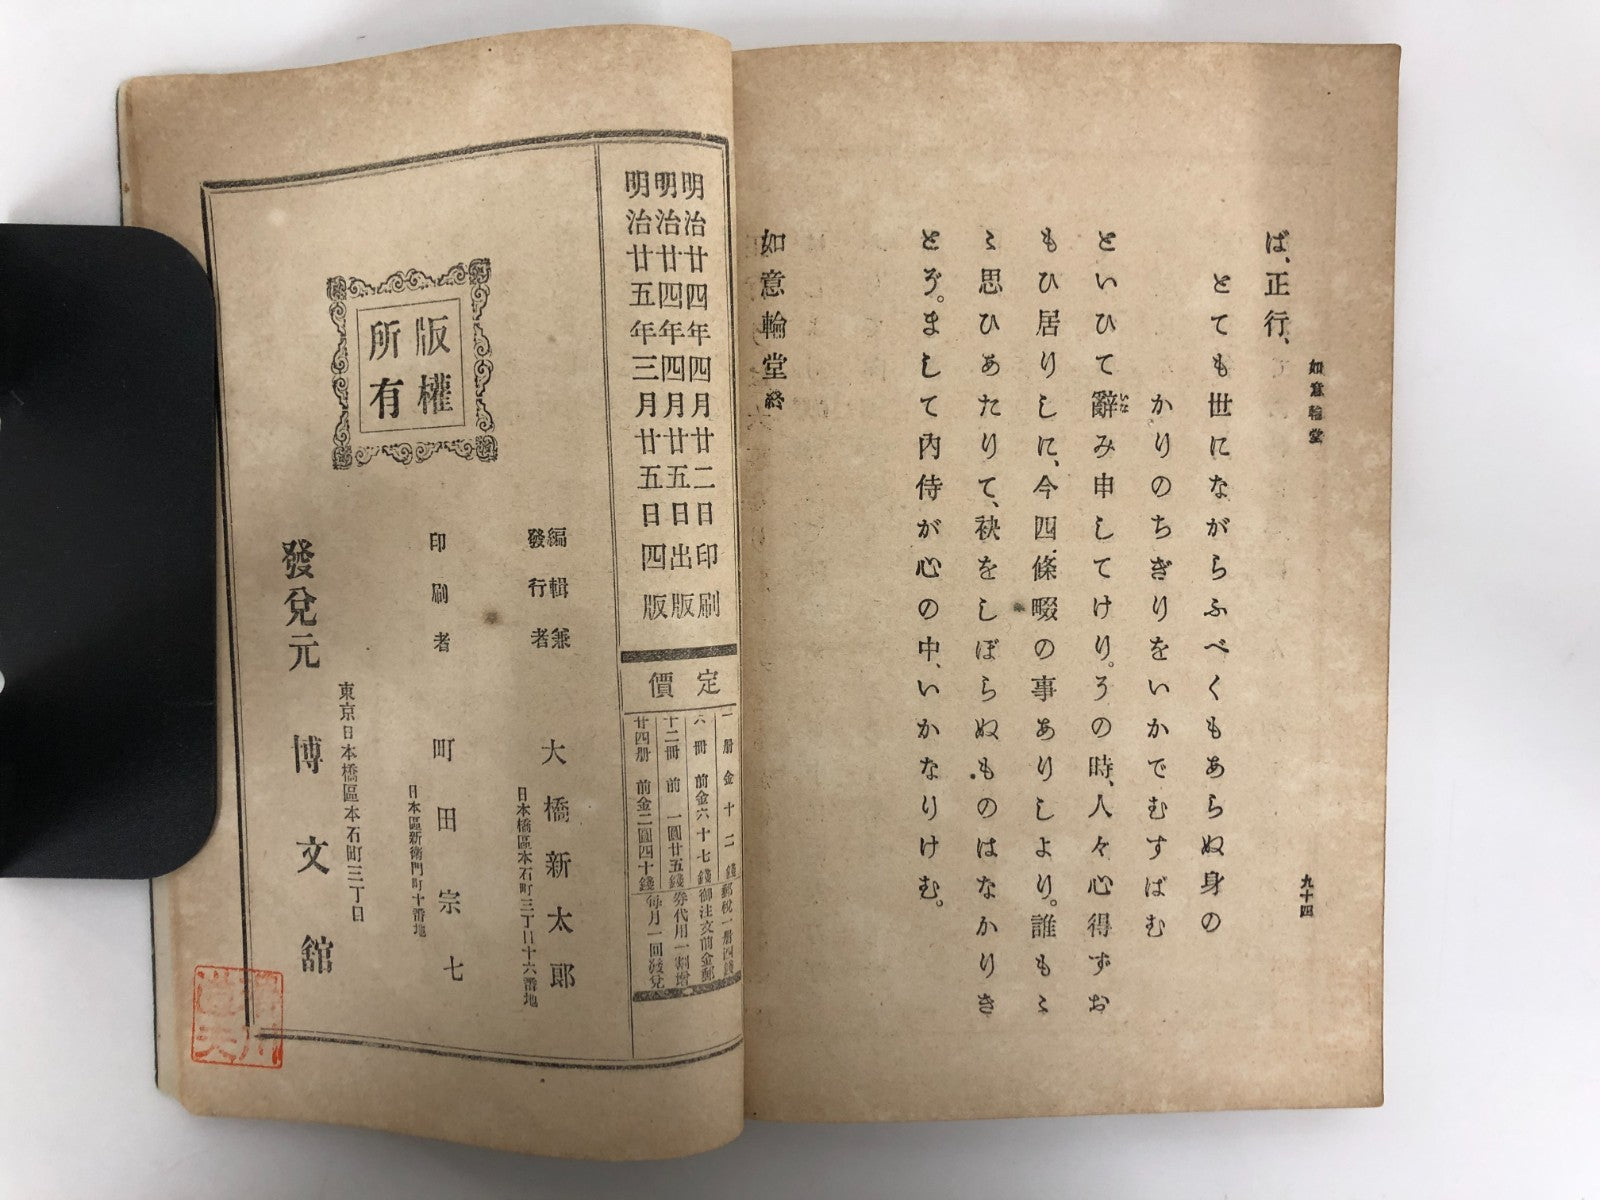 如意輪堂
九十四
ば、正行、
とても世にながらふべくもあらぬ身の
かりのちぎりをいかでむすばむ
といひて辭み申してけり。その時、人々心得ずお
もひ居りしに、今四條畷の事ありしより。誰もミ
ミ思ひあたりて、袂をしぼらぬものはなかりき
とぞ。まして内侍が心の中、いかなりけむ。
如意輪堂終
明治廿四年四月廿二日印刷
明治廿四年四月廿五日出版
明治廿五年三月廿五日四版
定價
一册金十二錢
六冊前金六十七錢
十二冊前一圓廿五錢
廿四册前金二圓四十錢
郵稅一册四錢
御注文前金郵
券代用一割增
每月一回發兌
版權
所有
編輯兼
發行者
大橋新太郎
日本橋區本石町三丁目十六番地
印刷者
町田宗七
日本區新衛門町十番地
東京日本橋區本石町三丁目
發兌元 博文舘